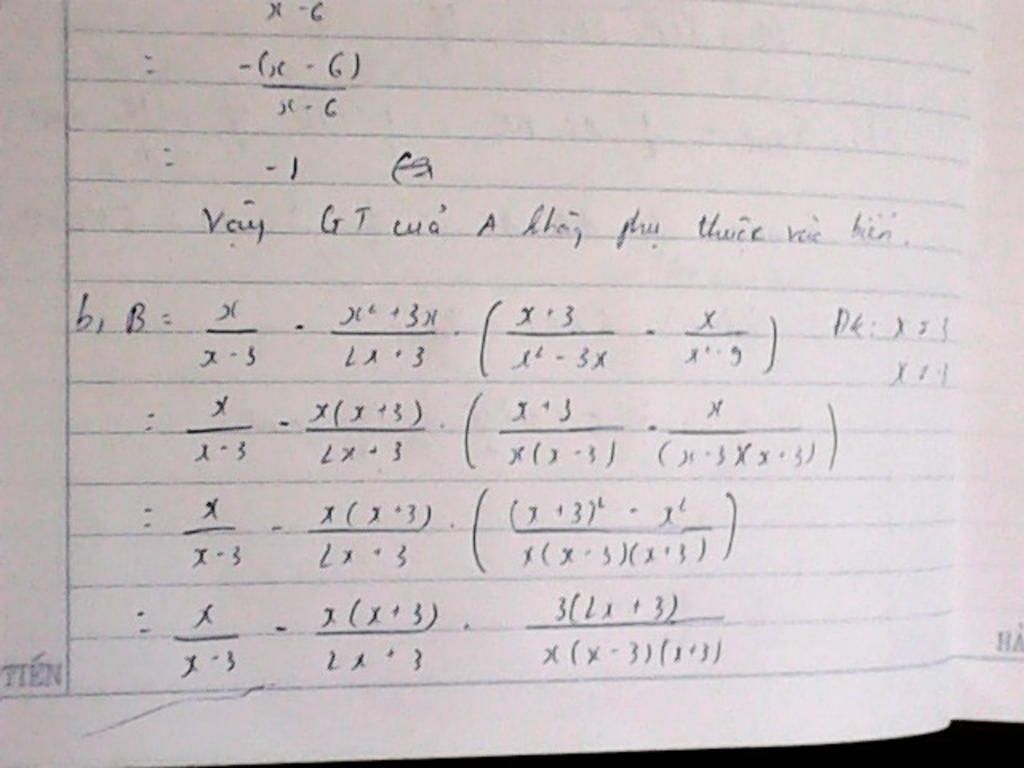 x - 6
= -(x - 6) / x - 6
= -1
Vậy GT của A không phụ thuộc vào biến.
b, B = x / x - 3 - x² + 3x / 2x + 3 . ( x + 3 / x² - 3x - x / x² - 9 ) ĐK: x
= x / x - 3 - x(x + 3) / 2x + 3 . ( x + 3 / x(x - 3) - x / (x - 3)(x + 3) )
= x / x - 3 - x(x + 3) / 2x + 3 . ( (x + 3)² - x² / x(x - 3)(x + 3) )
= x / x - 3 - x(x + 3) / 2x + 3 . 3(2x + 3) / x(x - 3)(x + 3)
TIẾN
HẢ